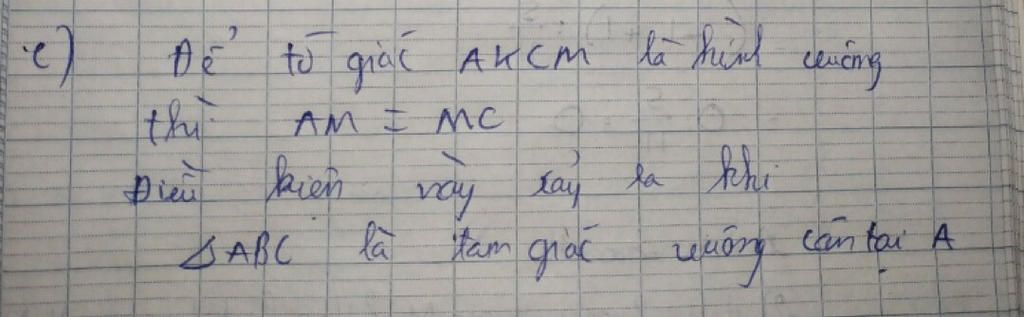 c) Để tứ giác AKCM là hình vuông
thì AM = MC
Điều kiện này xảy ra khi
△ABC là tam giác vuông cân tại A